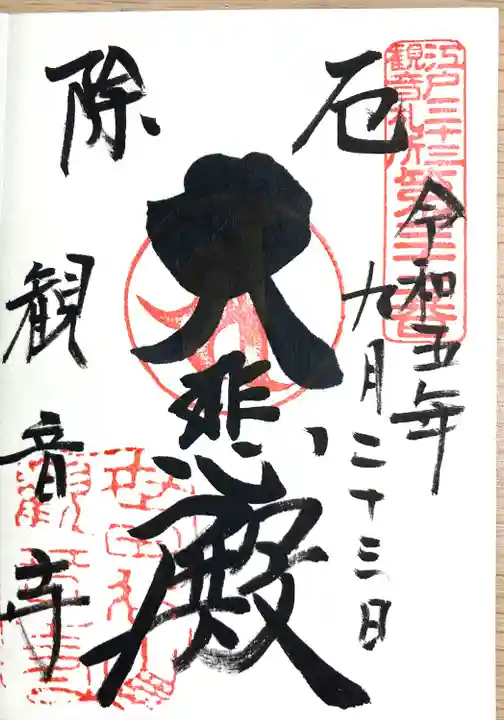 江戸三十三
観音札所第十三番
令和五年
九月二十三日
厄
除
大悲殿
観音寺